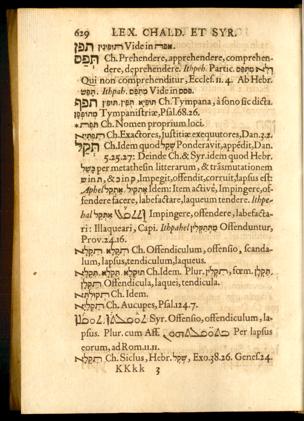 629 LEX. CHALD. ET SYR.
תפן Vide in
תפס Ch. Prehendere, apprehendere, comprehen-
dere, deprehendere. Ithpeh. Partic.
Qui non comprehenditur, Eccles. 11. 4. Ab Hebr.
תפש. Ithpah. Vide in פסס.
תפף Ch. Tympana, à sono sic dicta.
Tympanistriæ, Psal. 68. 26.
Ch. Nomen proprium loci.
Ch. Exactores, justitiæ exequutores, Dan. 3. 2.
תקל Ch. Idem quod שקל Ponderavit, appédit, Dan.
5. 25. 27: Deinde Ch. & Syr. idem quod Hebr.
כשל per metathesin litterarum, & trãsmutationem
Impegit, offendit, corruit, lapsus est:
Aphel אתקיל, אתקל Idem: Item activè, Impingere, of-
fendere facere, labefactare, laqueum tendere. Ithpe-
hal Impingere, offendere, labefacta-
ri: Illaqueari, Capi. Ithpahel Offenduntur,
Prov. 24. 16.
Ch. Offendiculum, offensio, scanda-
lum, lapsus, tendiculum, laqueus.
Ch. Idem. Plur. fœm.
Offendicula, laquei, tendicula.
Ch. Idem.
Ch. Aucupes, Psal. 124. 7.
Syr. Offensio, offendiculum, la-
psus. Plur. cum Aff. Per lapsus
eorum, ad Rom. 11. 11.
Ch. Siclus, Hebr. שקל, Exo. 38. 26. Genes. 24.
KKkk 3